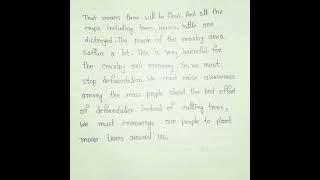 That means there will be flood. And all the
crops including trees, houses, cattle are
distroyed. The people of the nearby area
suffer a lot. This is very harmful for
the country and economy. So we must
stop deforestation. We must raise awareness
among the mass people about the bad effect
of deforestation. Instead of cutting trees,
we must encourage our people to plant
more trees around us.